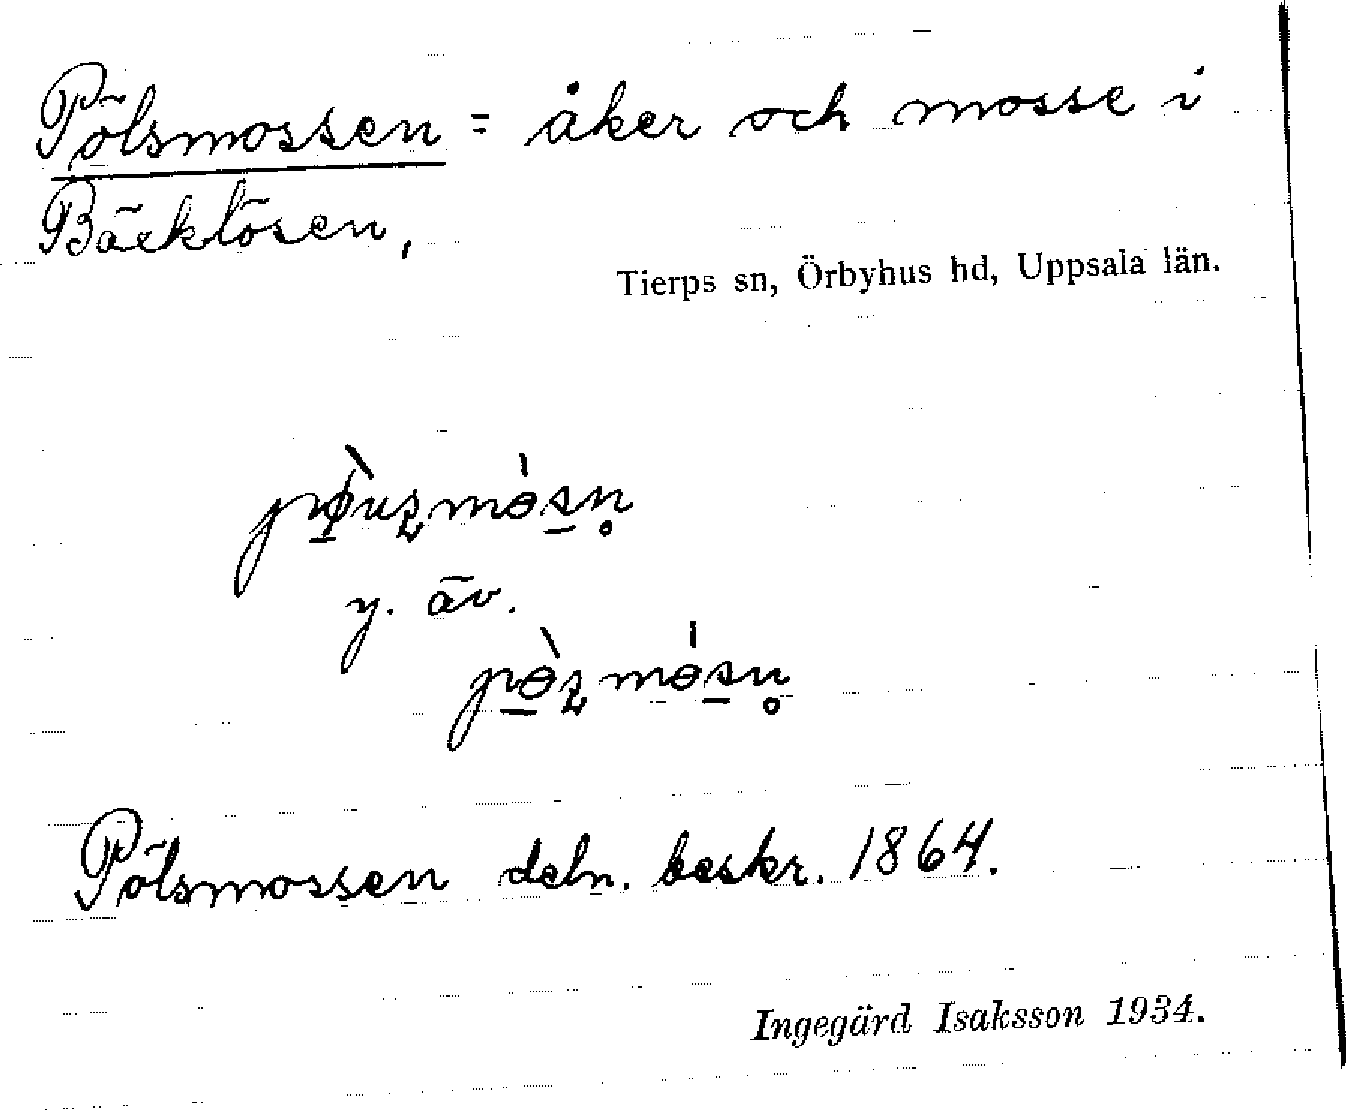 Pölsmossen = åker och mosse i
Bäcklösen,
Tierps sn, Örbyhus hd, Uppsala län.
y. äv.
Pölsmossen deln. beskr. 1864.
Ingegärd Isaksson 1934.